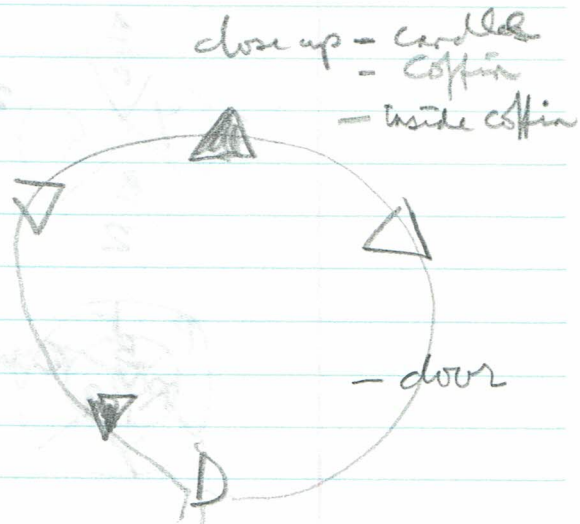 close up - candle
- Coffin
- inside coffin
- door
D